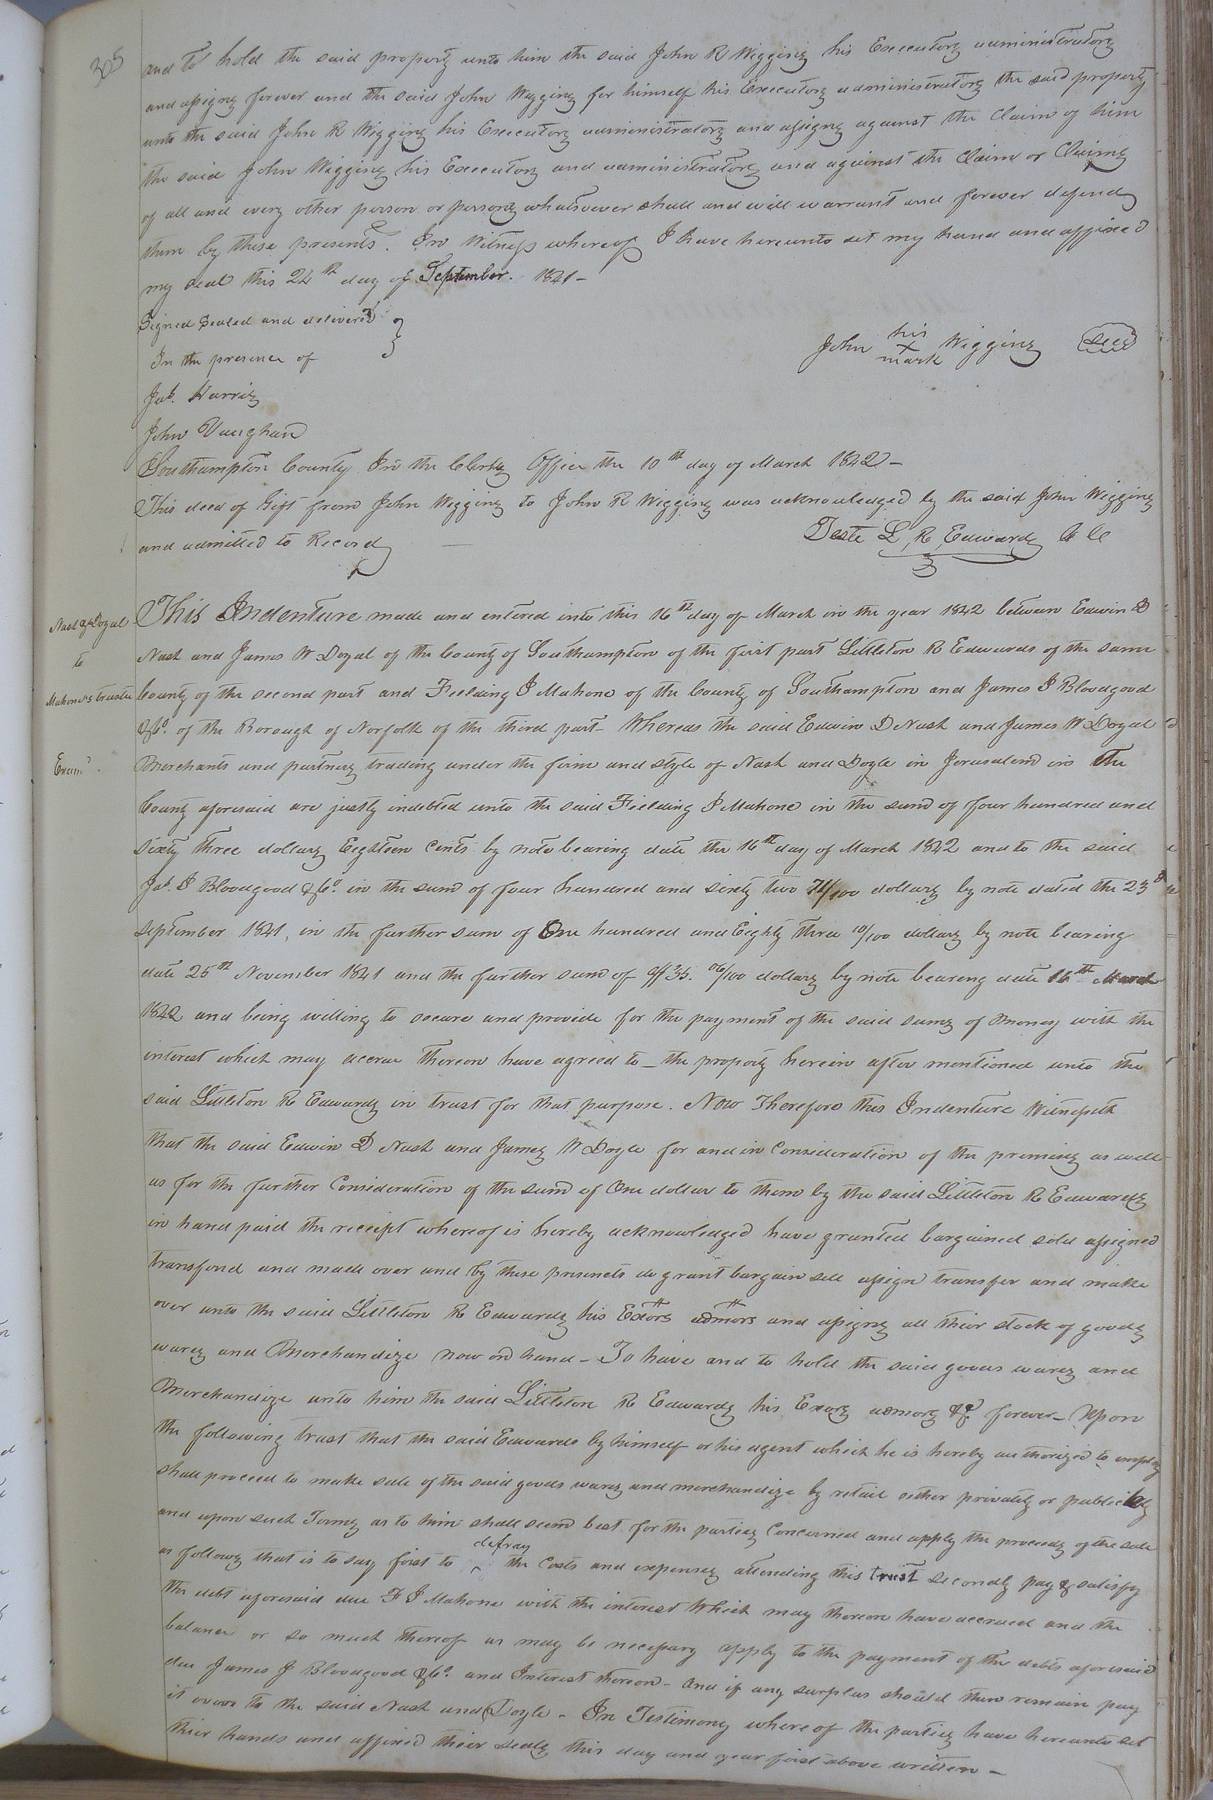 305
and to hold the said property unto him the said John R Wiggins his Executors administrators
and assigns forever and the said John Wiggins for himself his Executors administrators the said property
unto the said John R Wiggins his Executors administrators and assigns against the Claims of him
the said John Wiggins his Executors and administrators and against the Claim or Claims
of all and every other person or persons whatsoever shall and will warrant and forever defend
them by these presents. In Witness whereof I have hereunto set my hand and affixed
my seal this 24th day of September. 1841 -
Signed Sealed and delivered }
In the presence of
John his X mark Wiggins Seal
Jas. Harris
John Vaughan
Southampton County In the Clerks Office the 10th day of March 1842 -
This deed of Gift from John Wiggins to John R Wiggins was acknowledged by the said John Wiggins
and admitted to Record
Teste L. R. Edwards CC
Nash & Doyal
to
Mahone's trustee
Exam'd.
This Indenture made and entered into this 16th day of March in the year 1842 between Edwin D
Nash and James W Doyal of the County of Southampton of the first part Littleton R Edwards of the same
County of the second part and Fielding J Mahone of the County of Southampton and James J Bloodgood
& Co. of the Borough of Norfolk of the third part - Whereas the said Edwin D Nash and James W Doyal
Merchants and partners trading under the firm and style of Nash and Doyle in Jerusalem in the
County aforesaid are justly indebted unto the said Fielding J Mahone in the sum of four hundred and
sixty three dollars Eighteen Cents by note bearing date the 16th day of March 1842 and to the said
Jas. J Bloodgood & Co. in the sum of four hundred and sixty two 71/100 dollars by note dated the 23d
September 1841, in the further sum of One hundred and Eighty three 10/100 dollars by note bearing
date 25th November 1841 and the further sum of $35. 06/100 dollars by note bearing date 16th March
1842 and being willing to secure and provide for the payment of the said sums of Money with the
interest which may accrue thereon have agreed to - the property herein after mentioned unto the
said Littleton R Edwards in trust for that purpose. Now Therefore this Indenture Witnesseth
that the said Edwin D Nash and James W Doyle for and in Consideration of the premises as well
as for the further Consideration of the sum of One dollar to them by the said Littleton R Edwards
in hand paid the receipt whereof is hereby acknowledged have granted bargained sold assigned
transferd and made over and by these presents do grant bargain sell assign transfer and make
over unto the said Littleton R Edwards his Exors admors and assigns all their stock of goods
wares and Merchandize now on hand - To have and to hold the said goods wares and
Merchandize unto him the said Littleton R Edwards his Exors admors &c forever - Upon
the following trust that the said Edwards by himself or his agent which he is hereby authorized to employ
shall proceed to make sale of the said goods wares and merchandize by retail either privately or publickly
and upon such Terms as to him shall seem best for the parties Concerned and apply the proceeds of the sale
as follows that is to say first to defray the Costs and expenses attending this trust secondly pay & satisfy
the debt aforesaid due F J Mahone with the interest Which may thereon have accrued and the
balance or so much thereof as may be necessary apply to the payment of the debts aforesaid
due James J Bloodgood & Co. and Interest thereon - and if any surplus should then remain pay
it over to the said Nash and Doyle - In Testimony whereof the parties have hereunto set
their hands and affixed their seals this day and year first above written -